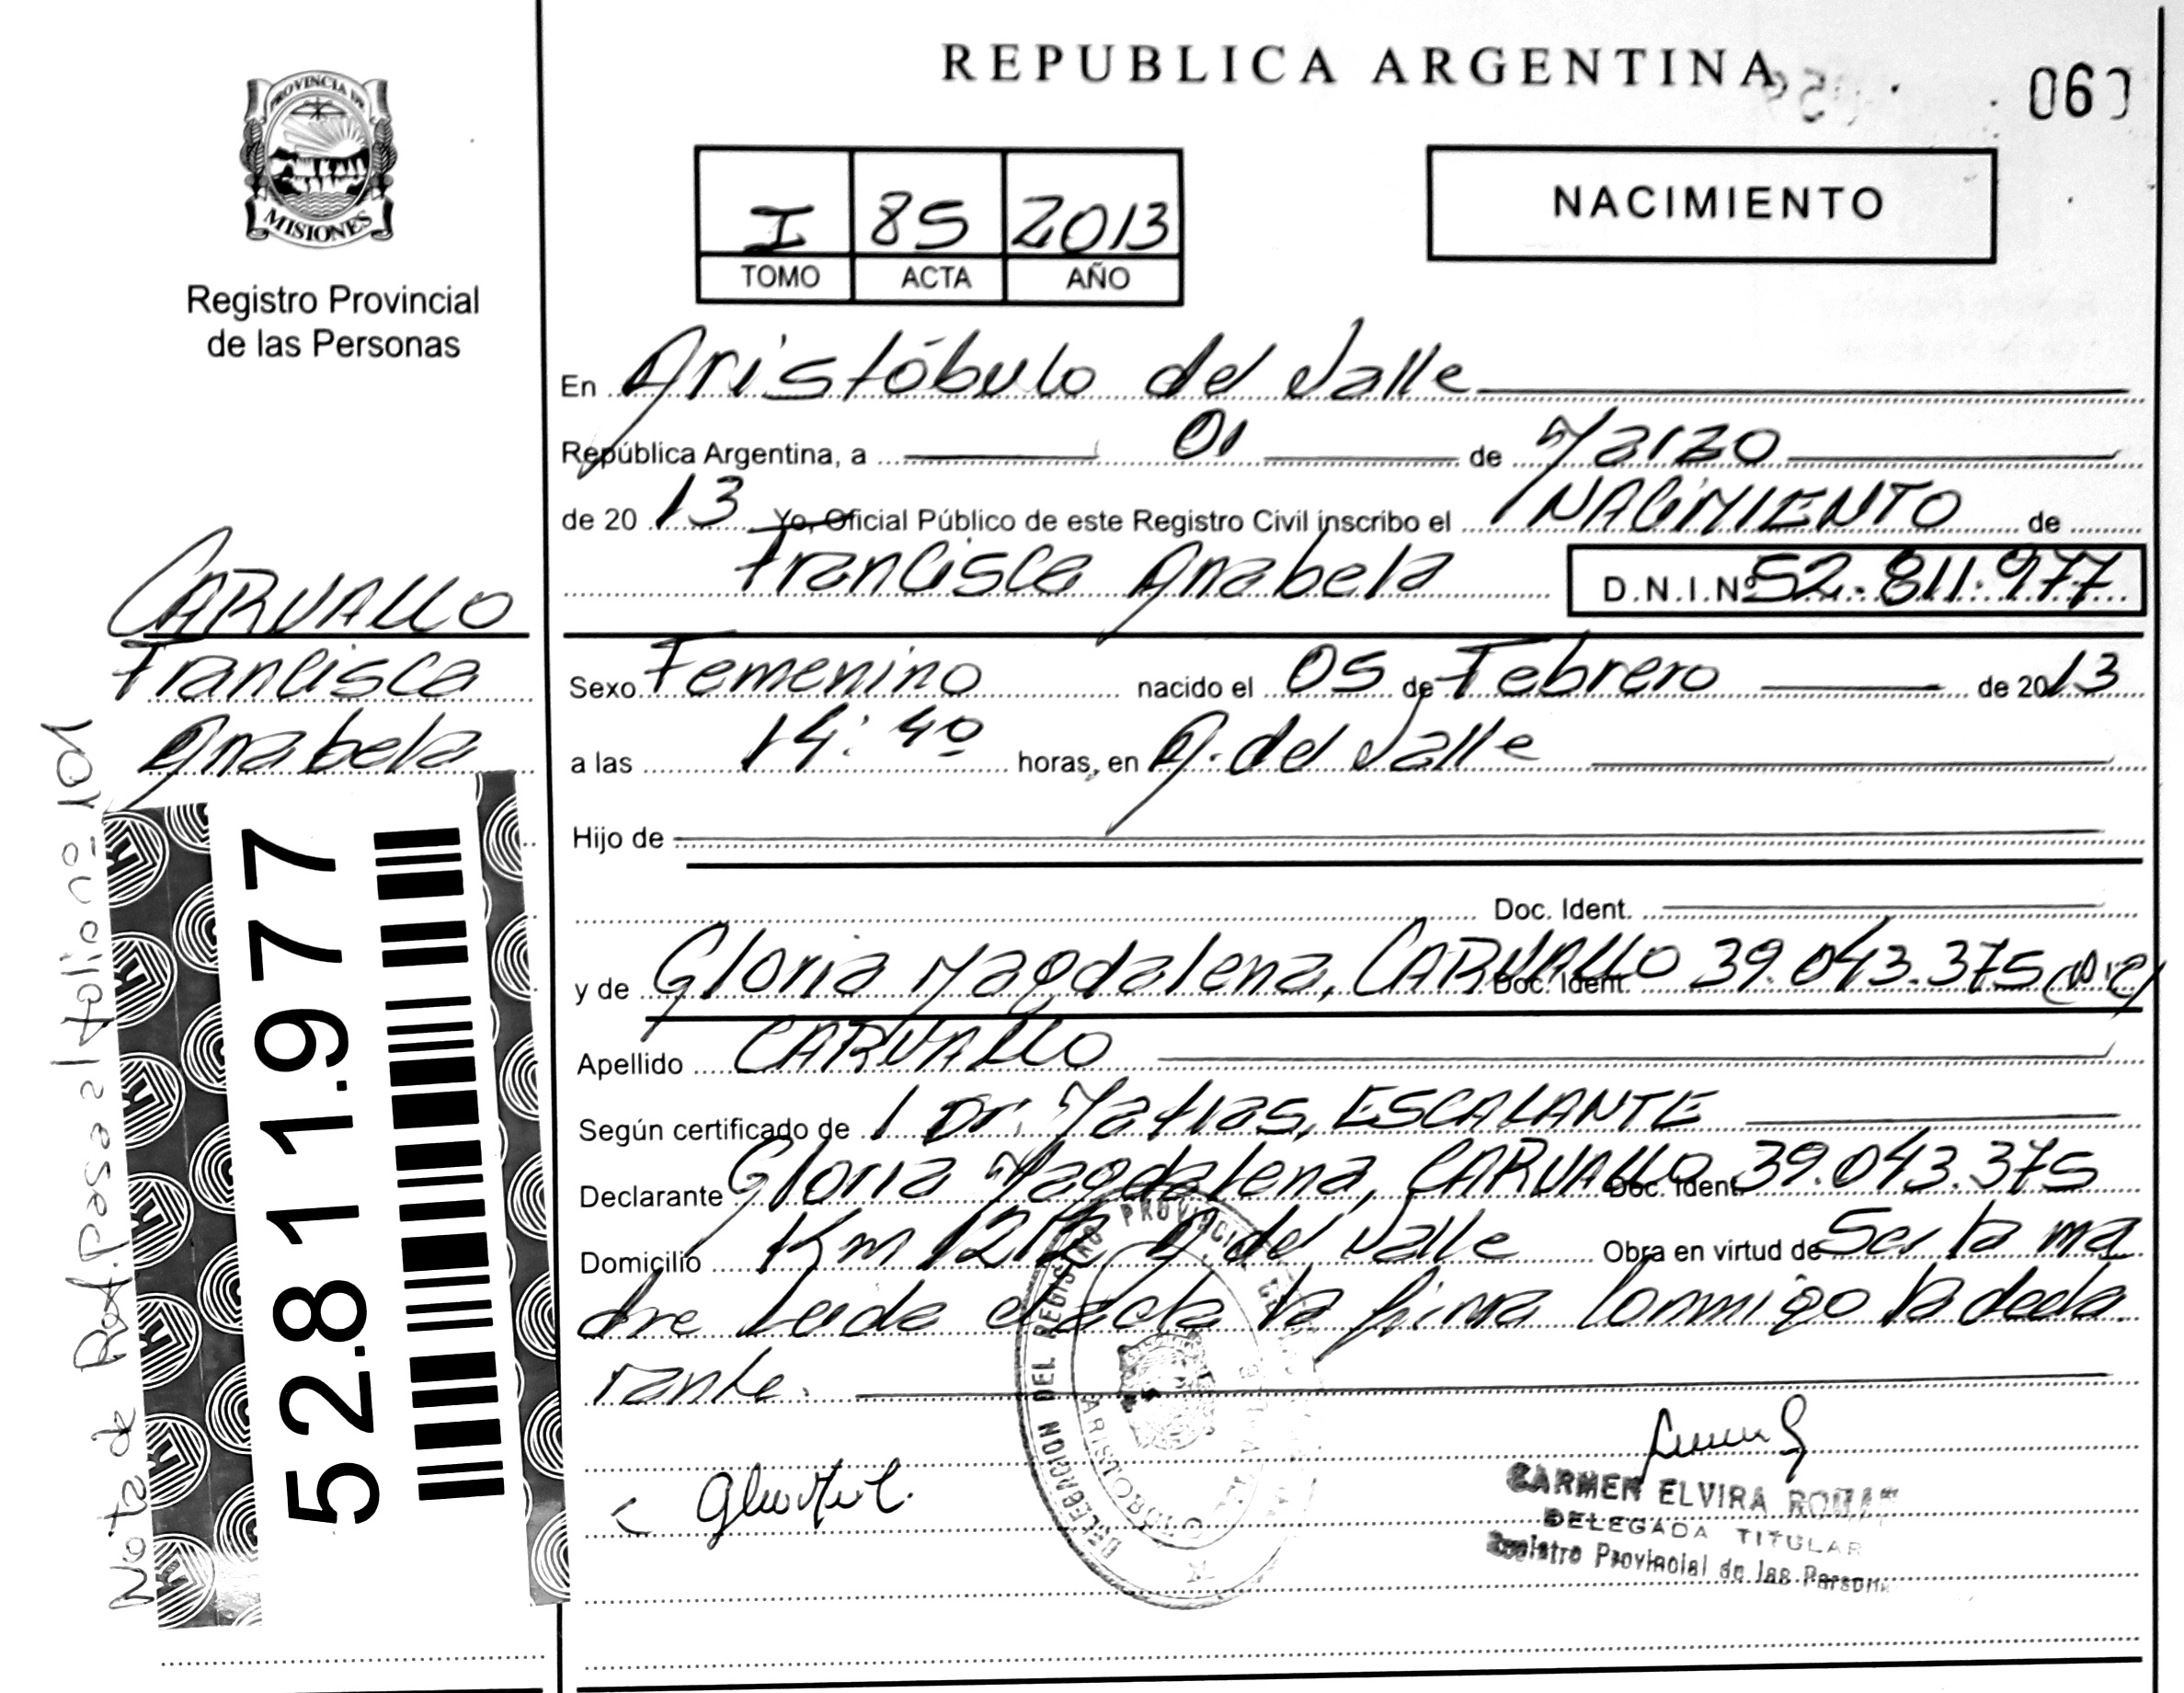 REPUBLICA ARGENTINA
060
PROVINCIA DE
MISIONES
Registro Provincial
de las Personas
I 85 2013
TOMO ACTA AÑO
NACIMIENTO
En Aristóbulo del Valle
República Argentina, a 01 de Marzo
de 2013 Yo, Oficial Público de este Registro Civil inscribo el NACIMIENTO de
Francisca Anabela D.N.I.Nº 52.811.977
CARVALLO
Francisca
Anabela
Sexo Femenino nacido el 05 de Febrero de 2013
a las 14:40 horas, en A. del Valle
Hijo de
Doc. Ident.
y de Gloria Magdalena, CARVALLO Doc. Ident. 39.043.375
Apellido CARVALLO
Según certificado de Dr. Matias, ESCALANTE
Declarante Gloria Magdalena, CARVALLO Doc. Ident. 39.043.375
Domicilio Km 1212 A. del Valle Obra en virtud de Ser la ma
dre Leida el acta la firma conmigo la decla
rante.
52.811.977
Nota de Rat. Pasa al folio nº 101
DELEGACION DEL REGISTRO PROVINCIAL
ARISTOBULO
CARMEN ELVIRA
DELEGADA TITULAR
Registro Provincial de las Person